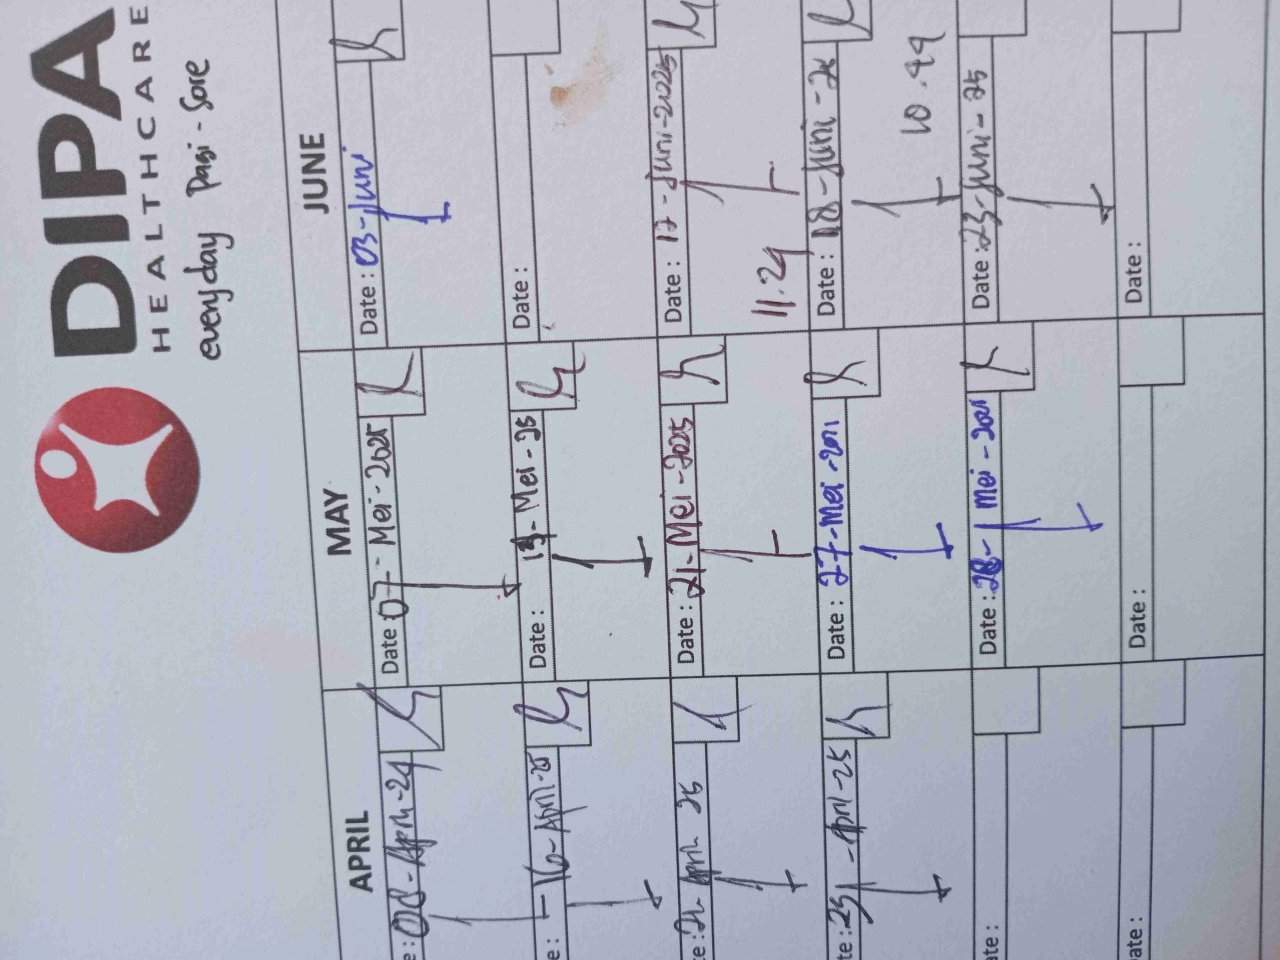 DIPA
HEALTHCARE
everyday Pagi - Sore
APRIL
MAY
JUNE
e: 08-April-24
Date: 07-Mei-2025
Date: 03-Juni
e: 16-April-25
Date: 13-Mei-25
Date:
te: 21 April 25
Date: 21-Mei-2025
Date: 17-Juni-2025
11.29
te: 25-April-25
Date: 27-Mei-2021
Date: 18-Juni-25
10.49
te:
Date: 28-Mei-2021
Date: 23-Juni-25
ate:
Date:
Date: